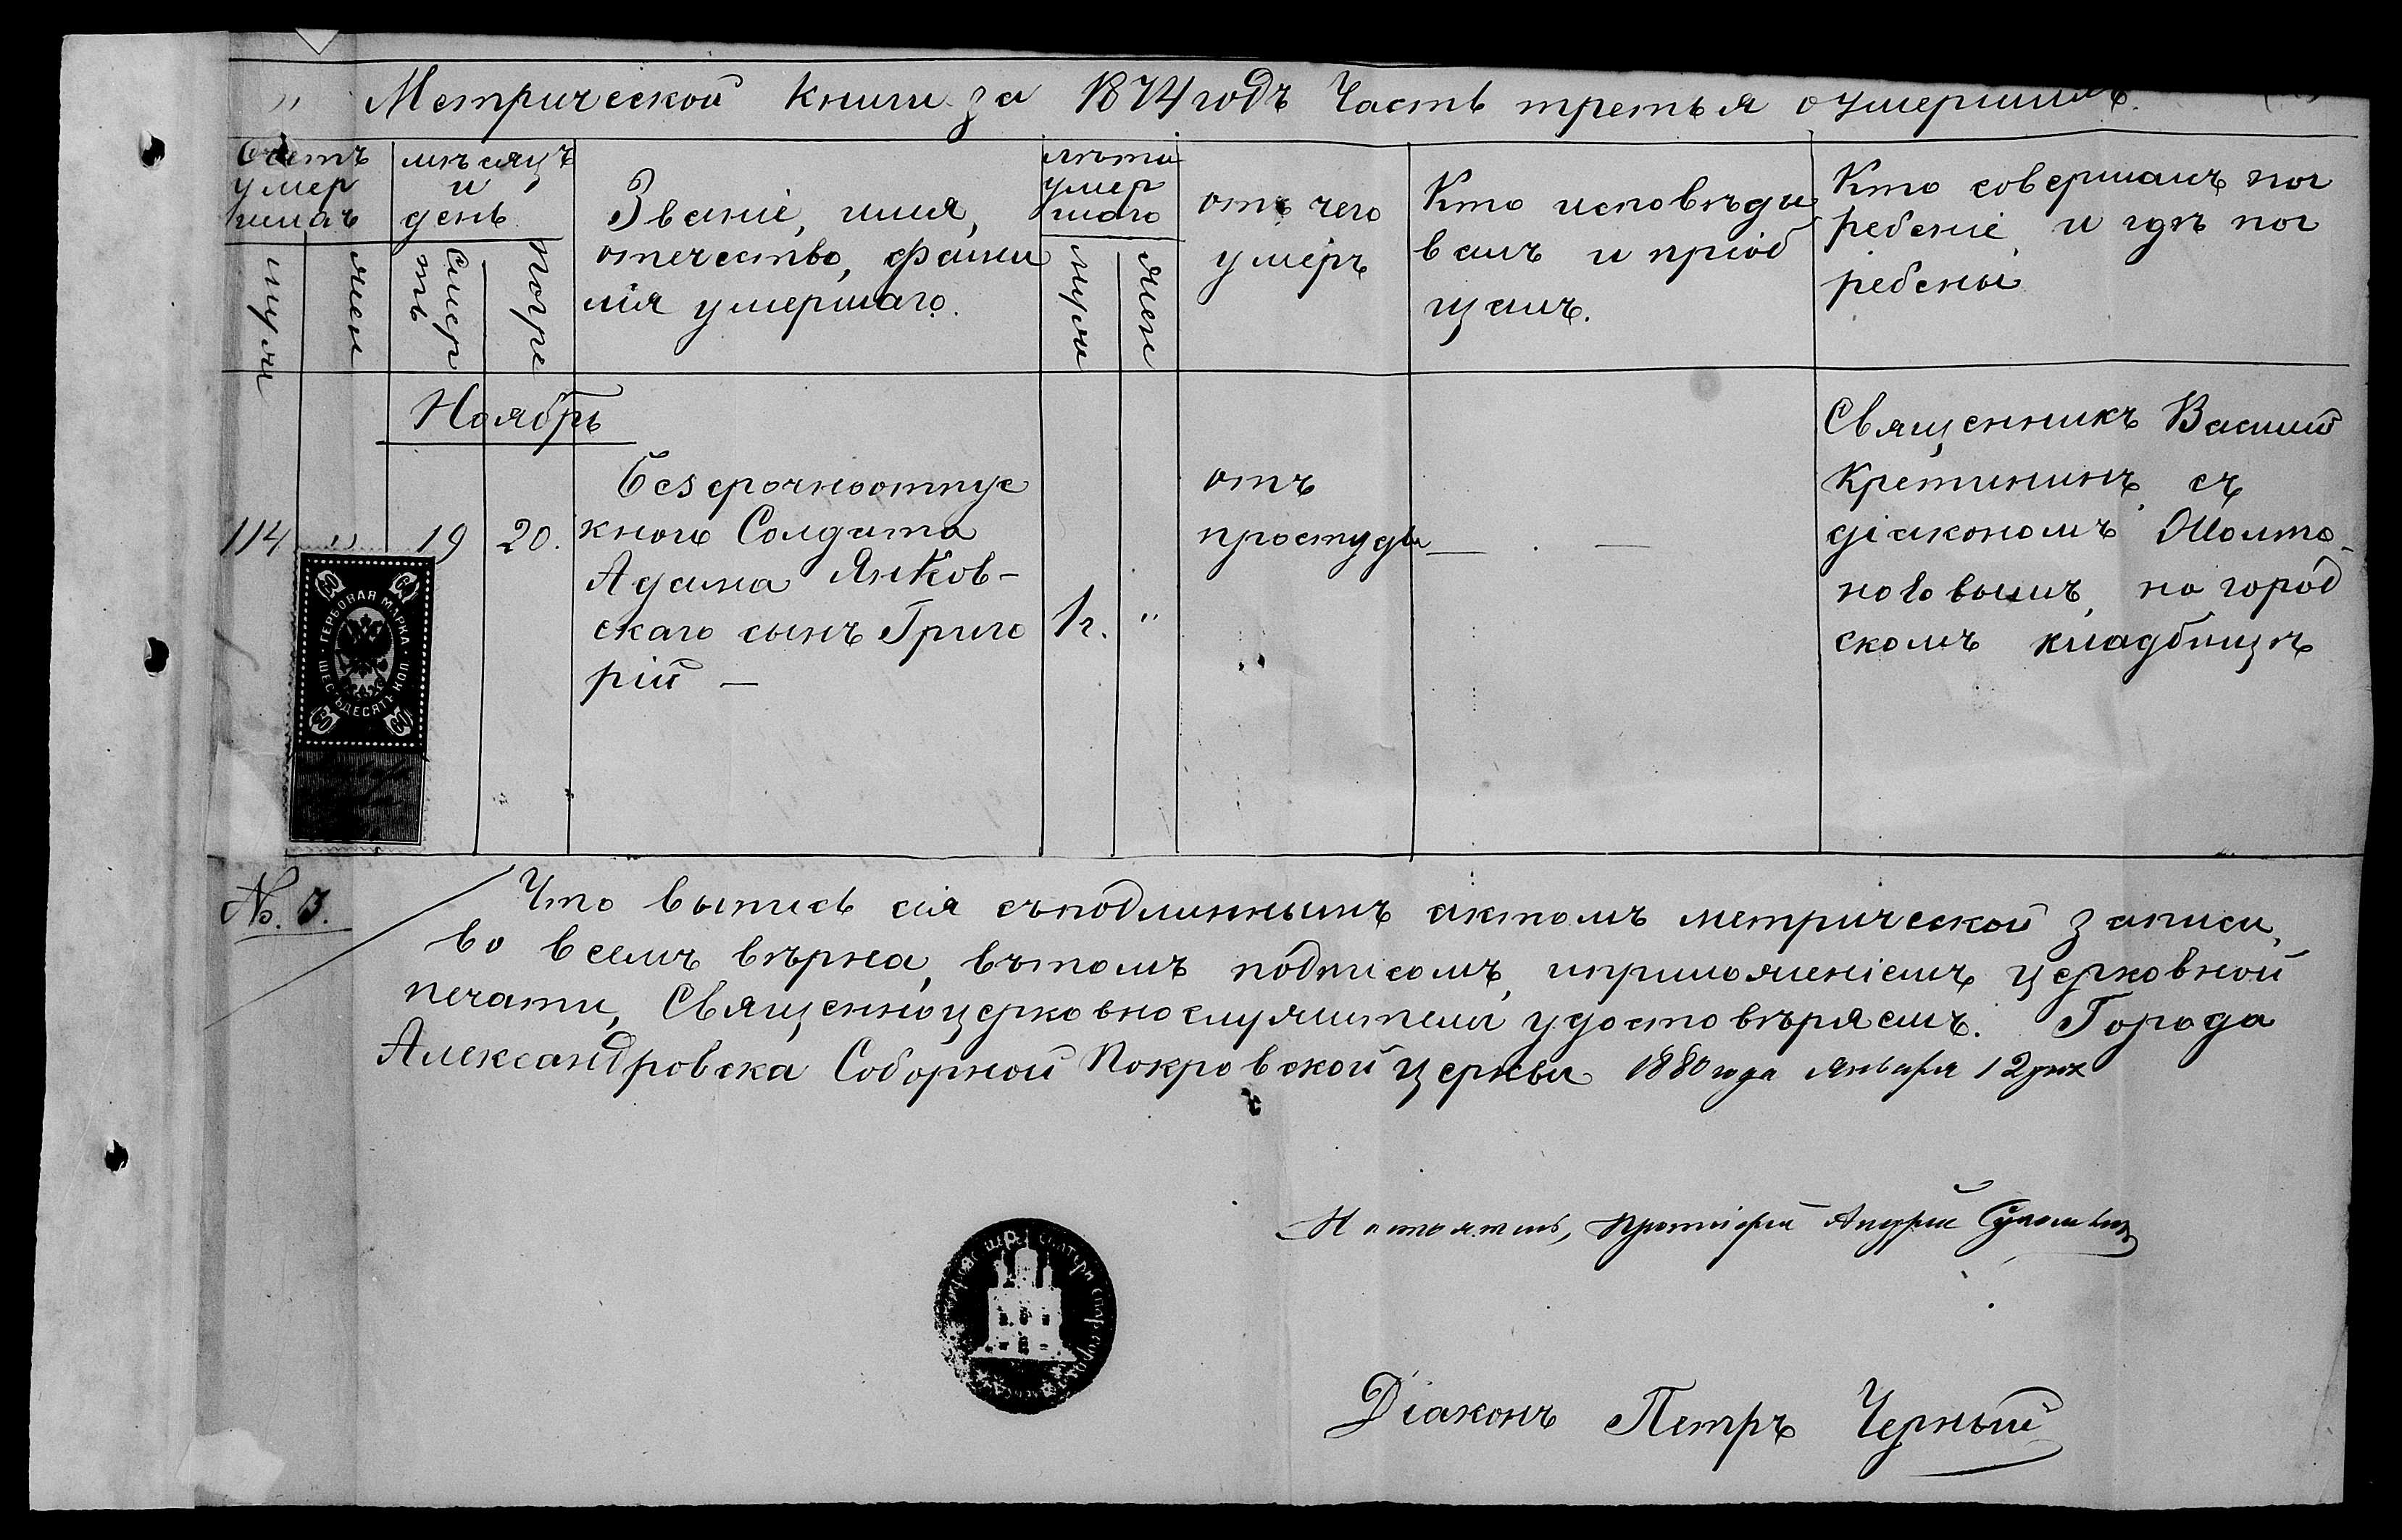 " Метрической книги за 1874 годъ Часть третья о умершихъ.
Счетъ
умер
шихъ
муж
жен
мѣсяцъ
и
день
Смер
ть
погре
Званіе, имя,
отчество, фами
лія умершаго.
лѣта
умер
шаго
муж
жен
отъ чего
умеръ
Кто исповѣды
валъ и пріоб
щалъ.
Кто совершалъ пог
ребеніе и гдѣ пог
ребены
Ноябрь
114 " 19 20.
Безсрочноотпус
кного Солдата
Адама Янков-
скаго сынъ Григо
рій —
1 г. "
отъ
простуды
Священникъ Василій
Кретининъ съ
діакономъ
на город
скомъ кладбищѣ
ГЕРБОВАЯ МАРКА · ШЕСТЬДЕСЯТЪ КОП. ·
60 60
60 60
№. 3.
Что выпись сія съ подлиннымъ актомъ метрической записи,
во всемъ вѣрна, въ томъ подписомъ, и приложеніемъ церковной
печати, Священноцерковнослужители удостовѣряемъ. Города
Александровска Соборной Покровской церкви 1880 года января 12 дня
Настоятель, Протоіерей Андрей
Діаконъ Петръ Черный